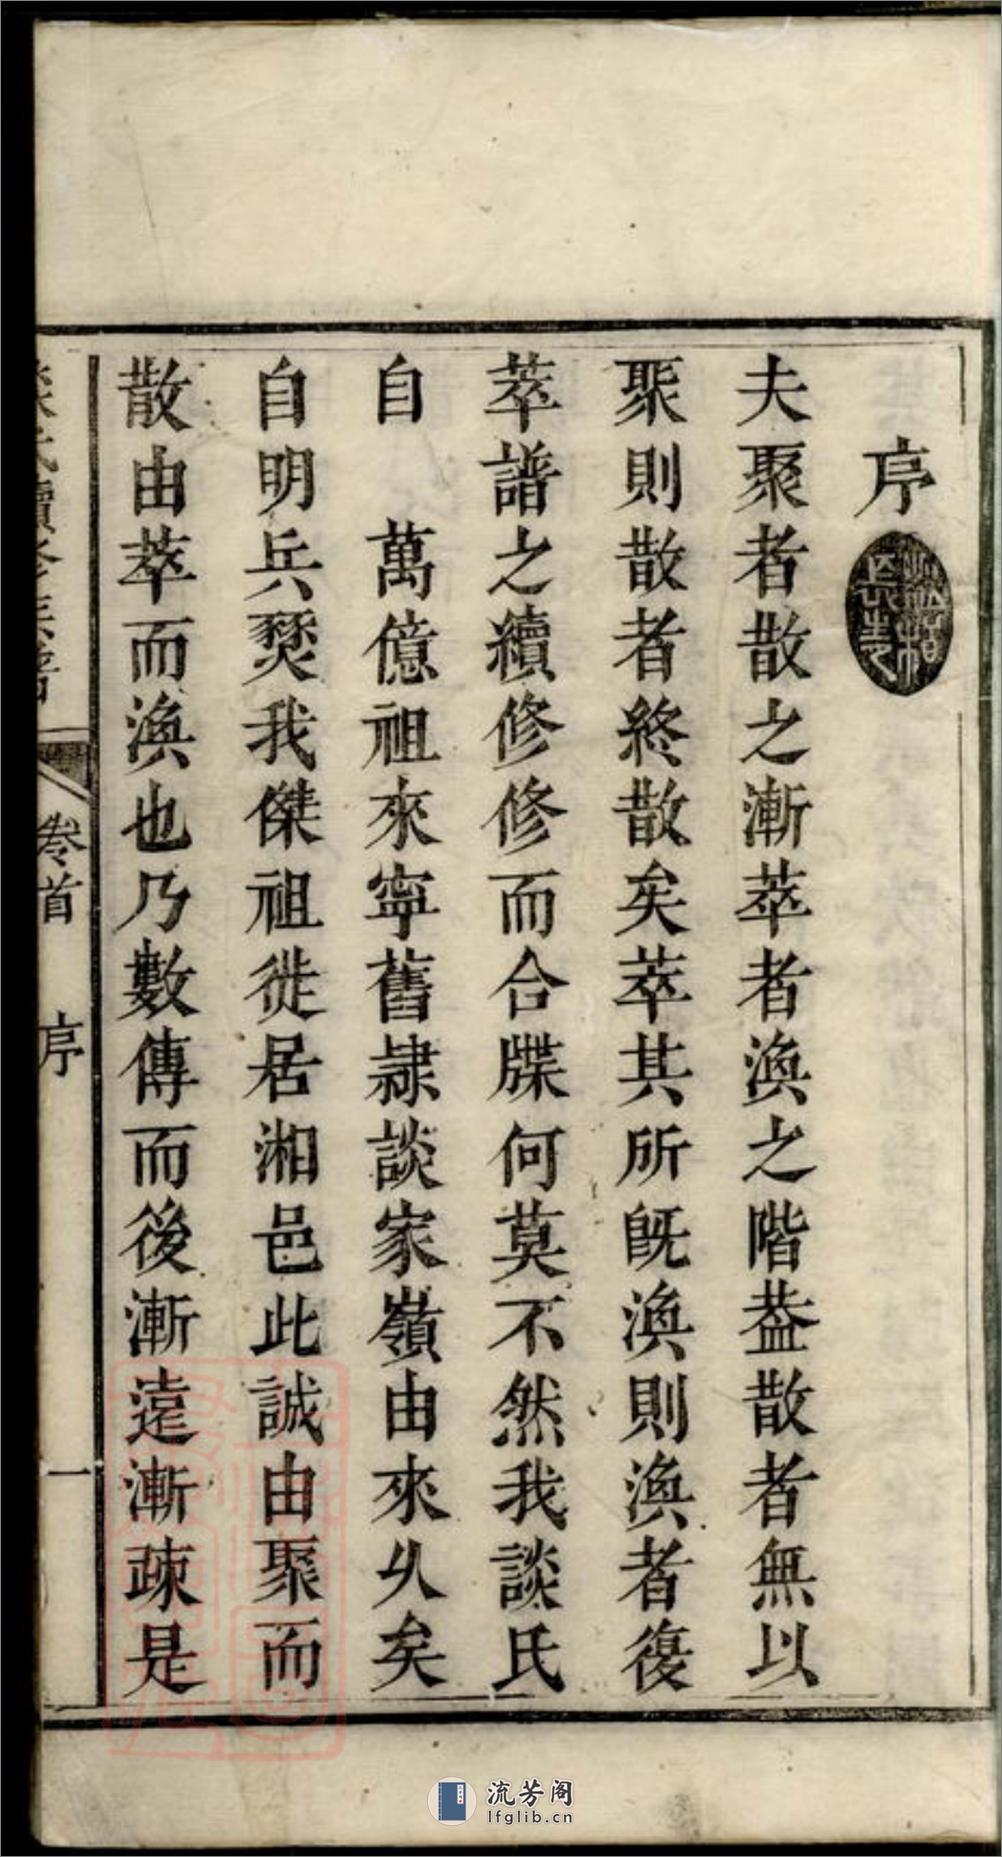 序
夫聚者散之漸萃者渙之階葢散者無以
聚則散者終散矣萃其所旣渙則渙者復
萃譜之續修修而合牒何莫不然我談氏
自　萬億祖來寧舊隷談家嶺由來乆矣
自明兵燹我傑祖徙居湘邑此誠由聚而
散由萃而渙也乃數傳而後漸遠漸疎是
談氏續修族譜
卷首
序
一
流芳阁
lfglib.cn